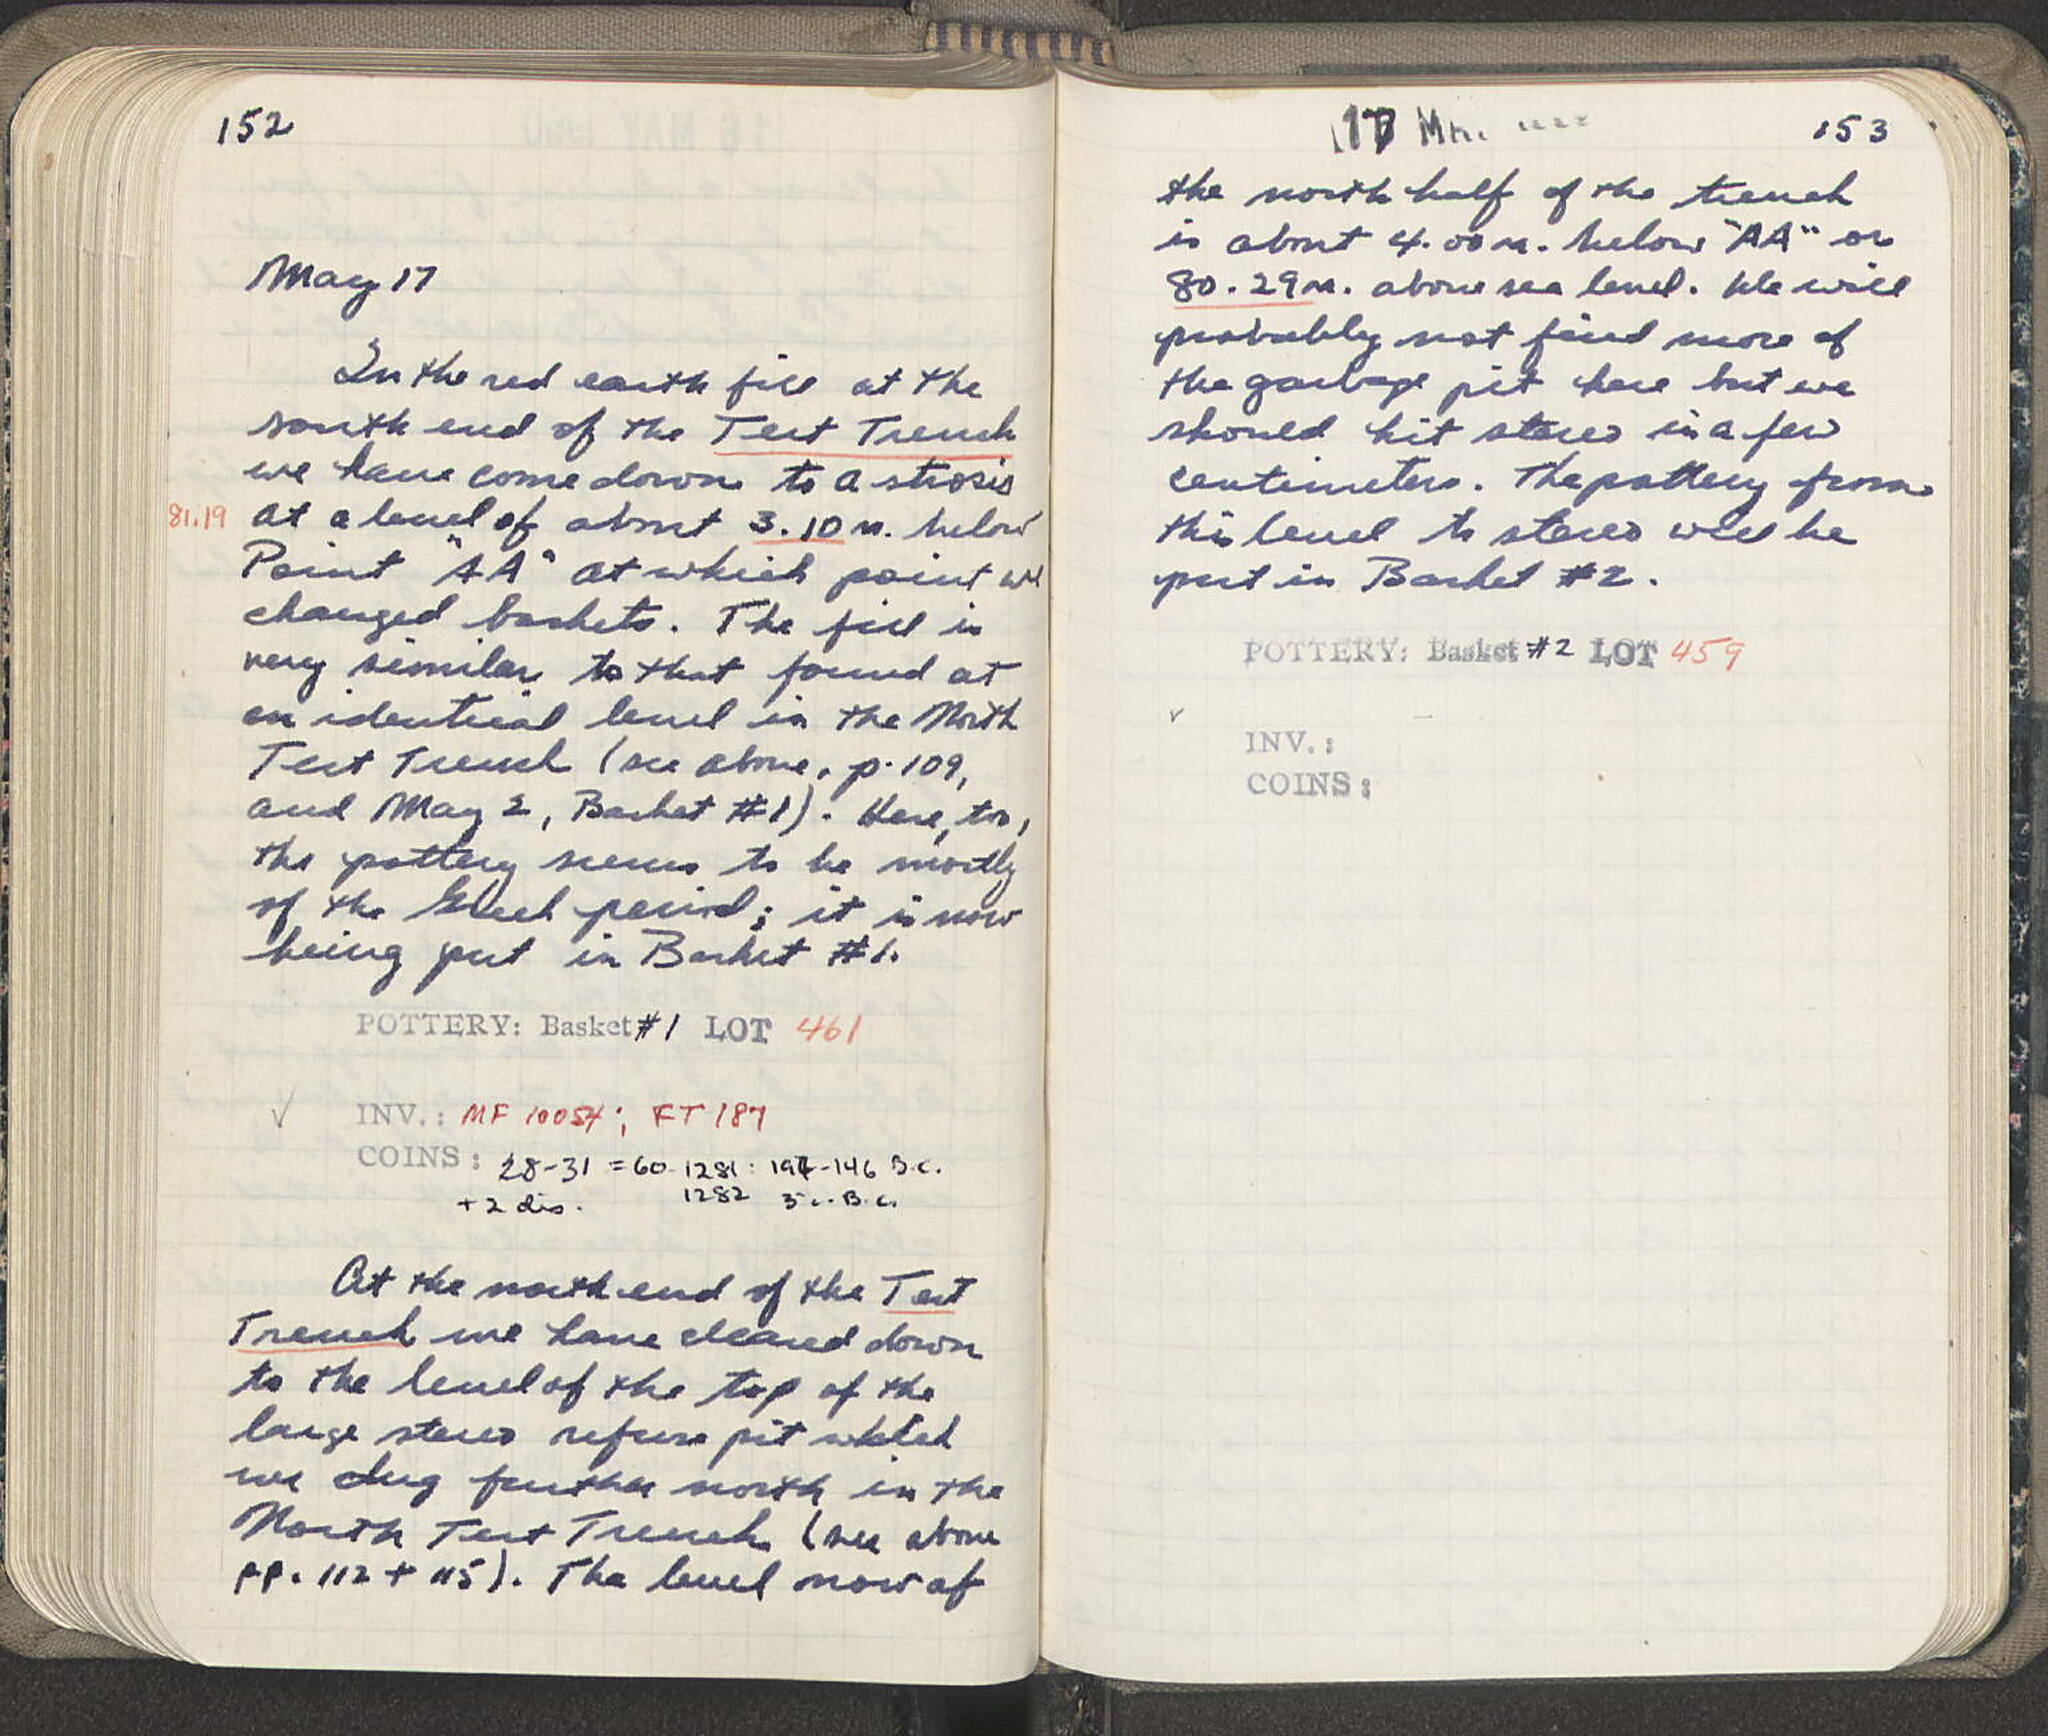 152
May 17
In the red earth fill at the
south end of the Test Trench
we have come down to a strosis
81.19 at a level of about 3.10 m. below
Point "AA" at which point we
changed baskets. The fill is
very similar to that found at
an identical level in the North
Test Trench (see above, p. 109,
and May 2, Basket #1). Here, too,
the pottery seems to be mostly
of the Greek period; it is now
being put in Basket #1.
POTTERY: Basket #1 LOT 461
INV.: MF 10054; FT 187
COINS: 28-31 = 60-1281: 196-146 B.C.
+2 dis. 1282 3 c. B.C.
At the north end of the Test
Trench we have cleared down
to the level of the top of the
large stereo refuse pit which
we dug further north in the
North Test Trench (see above
pp. 112 + 115). The level now of
17 MA
153
the north half of the trench
is about 4.00 m. below "AA" or
80.29 m. above sea level. We will
probably not find more of
the garbage pit here but we
should hit stereo in a few
centimeters. The pottery from
this level to stereo will be
put in Basket #2.
POTTERY: Basket #2 LOT 459
INV.:
COINS: